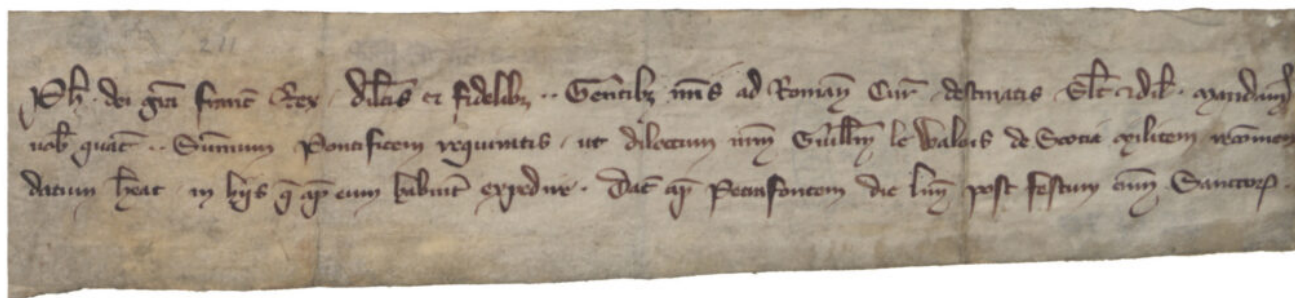 211
Ph. dei gra Franc Rex. dilcis et fidelibz.. Gentibz nris ad Roman Cur destinatis Salt et dil. Mandam
vob quat.. Summum Pontificem requiratis ut dilectum nrm Guillm le Walois de Scotia Militem recomen
datum heat in hijs q ap eum habuit expedire. Dat ap Petrafontem die lun post festum omn Sanctor.